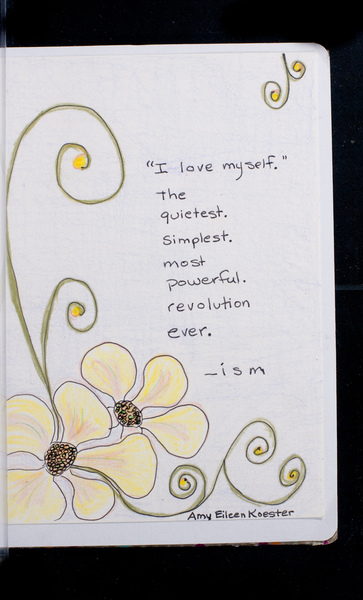 "I love myself."
The
quietest.
Simplest.
most
powerful.
revolution
ever.
– ism
Amy Eileen Koester